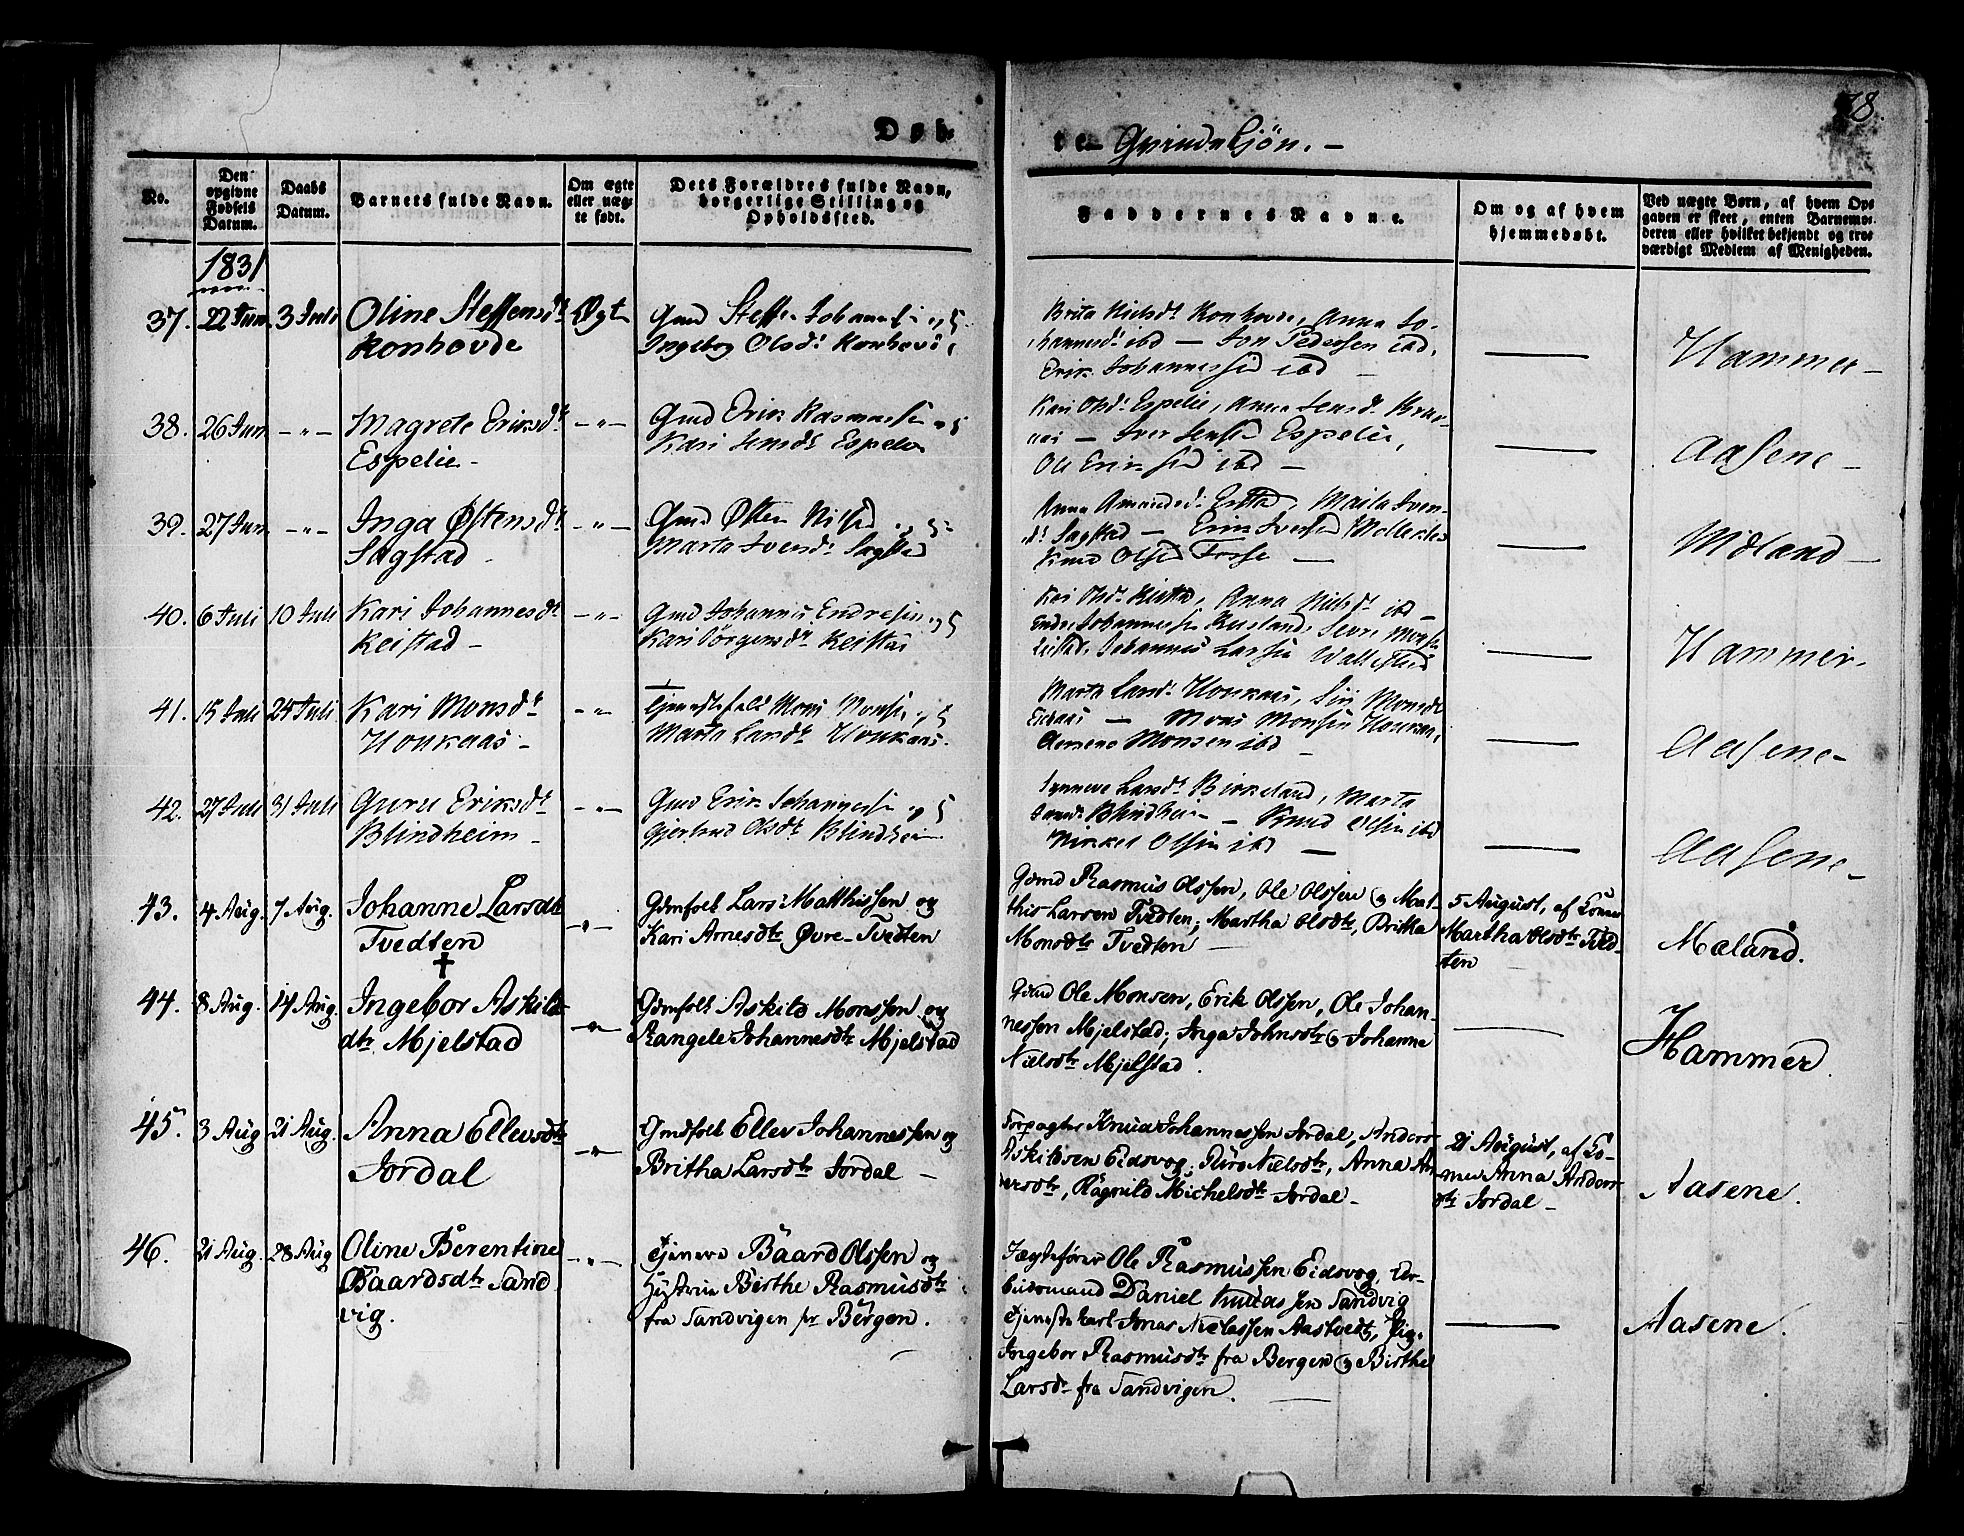 78.
Døb-
te Qvindekjön. -
No.
Den opgivne Fødsels Datum.
Daabs Datum.
Barnets fulde Navn.
Om ægte eller uægte født.
Dets Forældres fulde Navn, borgerlige Stilling og Opholdssted.
Faddernes Navne.
Om og af hvem hjemmedøbt.
Ved uægte Børn, af hvem Opgaven er skeet, enten Barnemoderen eller hvilket bekjendt og troværdigt Medlem af Menigheden.
1831
37. 22 Jun 3 Juli Oline Steffensdtr Ægte Gmd Steffen Johannessen og
Konhovde Ingebor Olsdr Konhovd
Brita Nielsdr Konhovde, Anna Jo-
hannesdr ibd — Jon Pedersen ibd,
Erik Johannessen ibd —
Hammer —
38. 26 Jun -"- Magrete Eriksdtr -"- Gmd Erik Rasmussen og
Espelie - Kari Jensdr Espelie
Kari Olsdr Espelie, Anna Jensdr
— Iver Jensen Espelie,
Ole Eriksen ibd —
Aasene —
39. 27 Jun -"- Inga Østensdtr -"- Gmd Østen Nilsen og
Sagstad - Marta Iversdr Sagstad
Anna Amundsdr, Marta Iver-
sdr Sagstad — Erik Iversen
Knud Olsen Fosse —
Mæland —
40. 6 Juli 10 Juli Kari Johannesdtr -"- Gmd Johannes Endresen og
Reistad - Kari Börgesdr Reistad
Kari Olsdr, Anna Nielsdr ibd —
Johannessen
Johannes Larsen
Hammer -
41. 15 Juli 24 Juli Kari Monsdtr -"- Tjenestefolk Mons Monsen og
Houkaas - Marta Larsdr Houkaas.
Marta Larsdr Houkaas, Siri Monsdr
— Mons Monsen Houkaas,
Monsen ibd —
Aasene -
42. 27 Juli 31 Juli Guru Eriksdtr -"- Gmd Erik Johannessen og
Blindheim - Gjertrud Olsdr Blindheim
Synneve Larsdr Birkeland, Marta
Blindheim — Knud Olsen ibd
Mikkel Olsen ibd —
Aasene -
43. 4 Aug. 7 Aug. Johanne Larsdtr -"- Gdmfolk Lars Matthissen og
Tvedten † Kari Arnesdtr Øvre-Tvedten
Gdmd Rasmus Olssen, Ole Olssen og Mat-
this Larsen Tvedten; Martha Olsdtr, Britha
Monsdtr Tvedten —
5 August, af Konen
Martha Olsdtr Tved-
ten
Mæland.
44. 8 Aug. 14 Aug. Ingebor Askild- -"- Gdmfolk Askild Monssen og
dtr Mjelstad Rangele Johannesdtr Mjelstad
Gdmd Ole Monsen, Erik Olssen, Ole Johan-
nessen Mjelstad; Inga Johnsdtr og Johanne
Nielsdtr Mjelstad.
Hammer.
45. 3 Aug 21 Aug. Anna Ellevsdtr -"- Gmdfolk Ellev Johannessen og
Jordal Britha Larsdtr Jordal —
Forpagter Knud Johannessen Jordal, Anders
Askildsen Eidsvog; Guro Nielsdtr, Anna An-
dersdtr, Ragnild Michelsdtr Jordal -
21 August, af Ko-
nen Anna Anders-
dtr Jordal -
Aasene.
46. 21 Aug. 28 Aug Oline Berentine -"- Tjenere Baard Olssen og
Baardsdtr Sand- Hustrue Birthe Rasmusdtr
vig. fra Sandvigen pr Bergen.
Jægtefører Ole Rasmussen Eidsvog, Ar-
beidsmand Daniel Knudssen Sandvig
Tjenestekarl Jonas Nielssen Aastvedt, Pig.
Ingebor Rasmusdtr fra Bergen og Birthe
Larsdr fra Sandvigen.
Aasene.